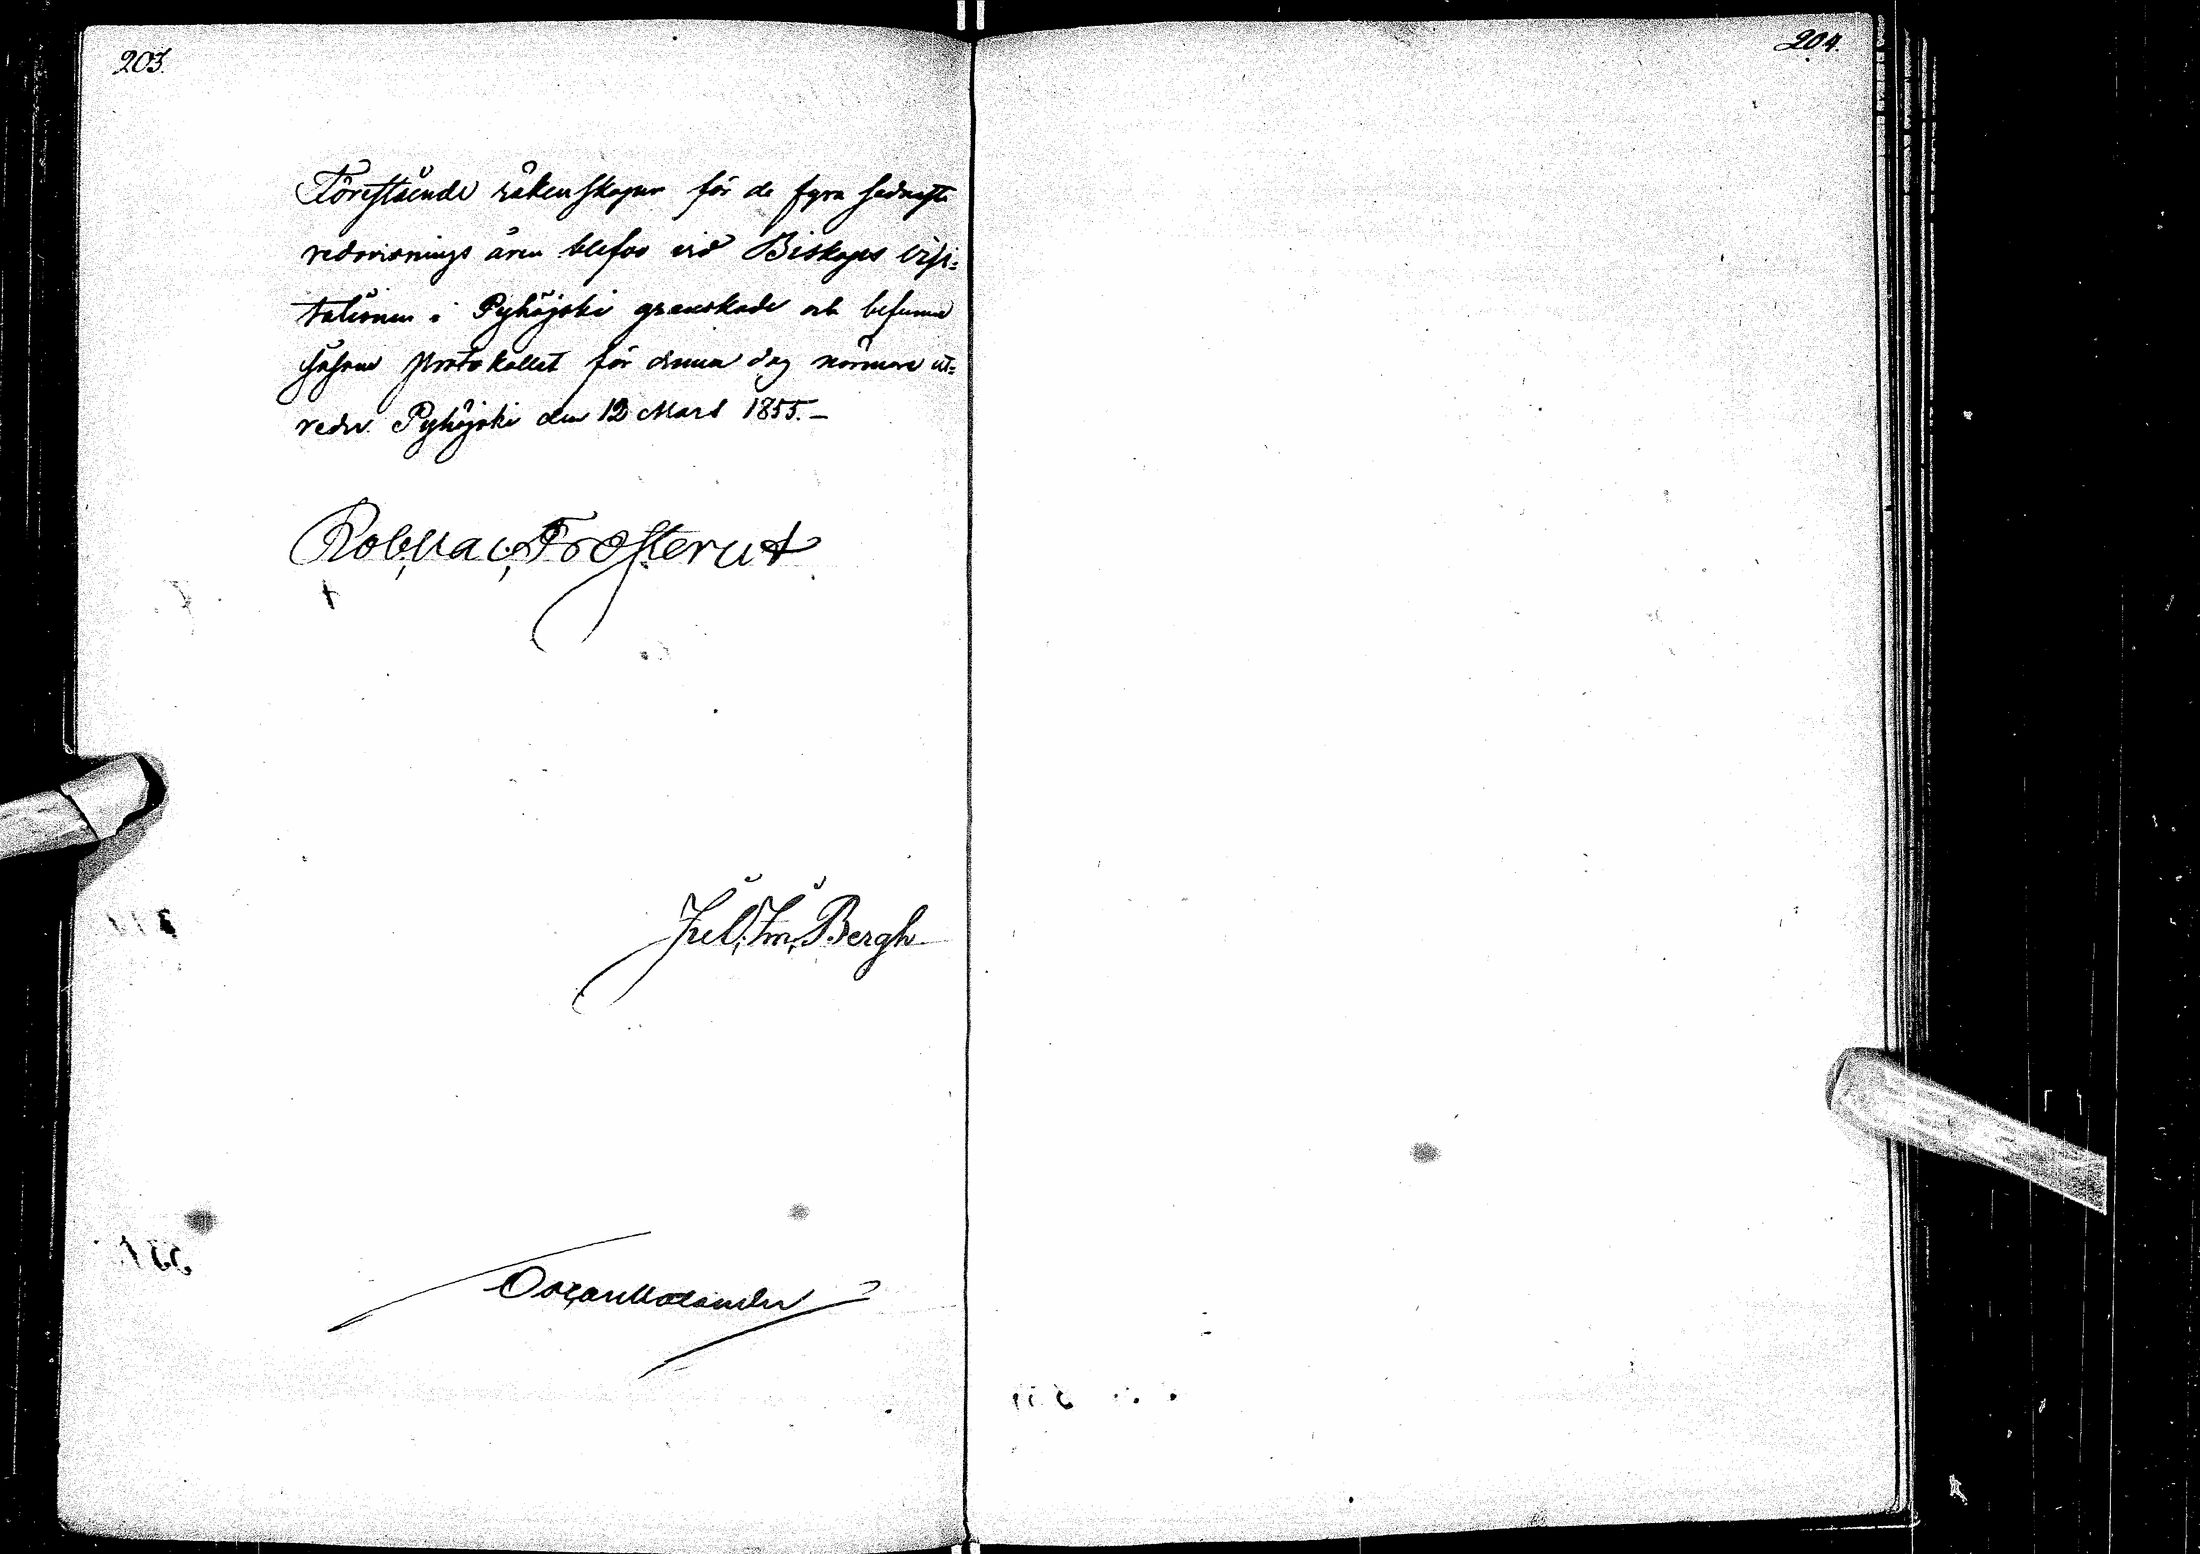 203.
204.
Förestående räkenskaper för de fyra sednaste
redovisnings åren blefvo vid Biskops visi=
tationen i Pyhäjoki granskade och befunne
såsom protokollet för denna dag närmare ut=
reder. Pyhäjoki den 12 Mars 1855.–
Rob. Val. Frosterus
Jul. Im. Bergh